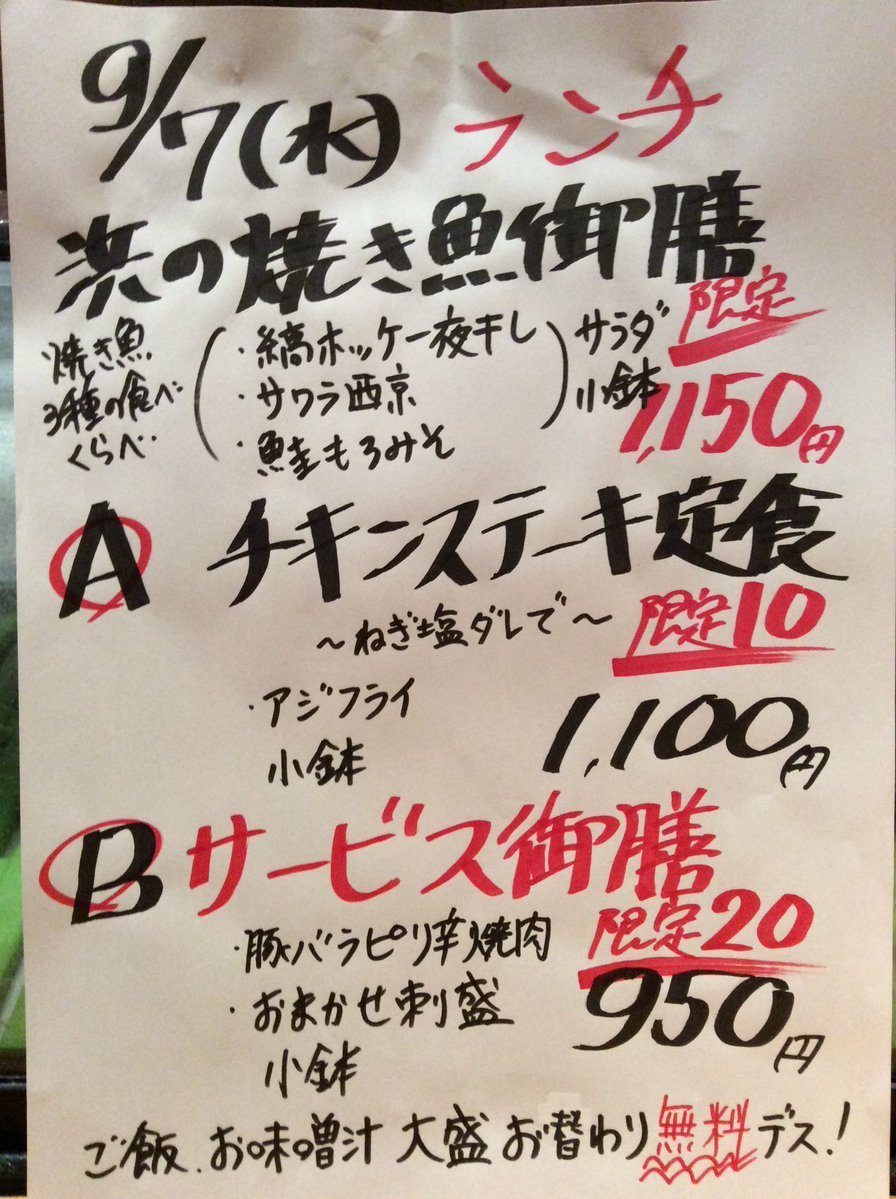 9/7(水) ランチ
浜の焼き魚御膳
限定
焼き魚
3種の食べ
くらべ
(・縞ホッケ一夜干し
・サワラ西京
・鮭もろみそ)
サラダ
小鉢
1,150円
A チキンステーキ定食
〜ねぎ塩ダレで〜 限定10
・アジフライ
小鉢
1,100円
B サービス御膳
限定20
・豚バラピリ辛焼肉
・おまかせ刺盛
小鉢
950円
ご飯、お味噌汁 大盛 お替わり無料デス!